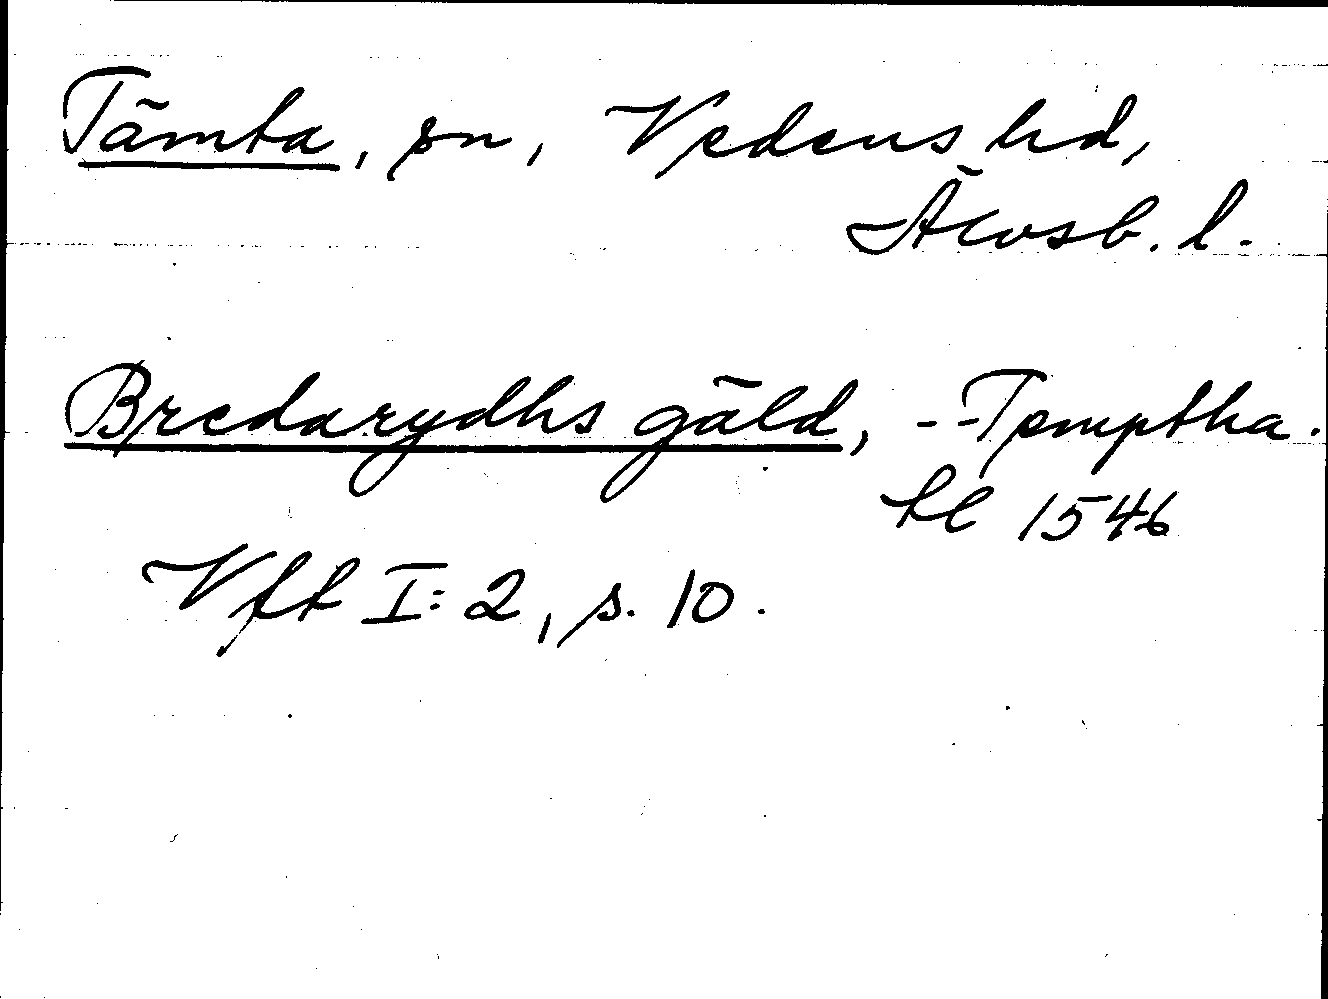 Tämta, sn, Vedens hd,
Älvsb. l.
Bredarydhs gäld, -- Temptha.
hl 1546
Vft I:2, s. 10.